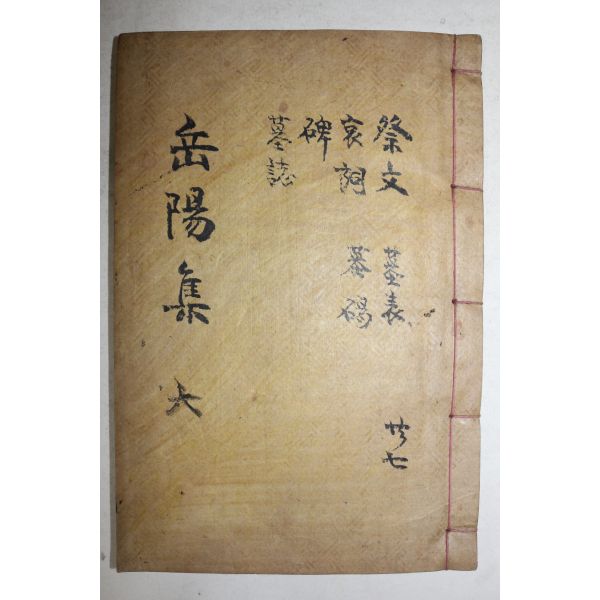 祭文 墓表
哀詞 墓碣
碑
墓誌
共七
岳陽集 六